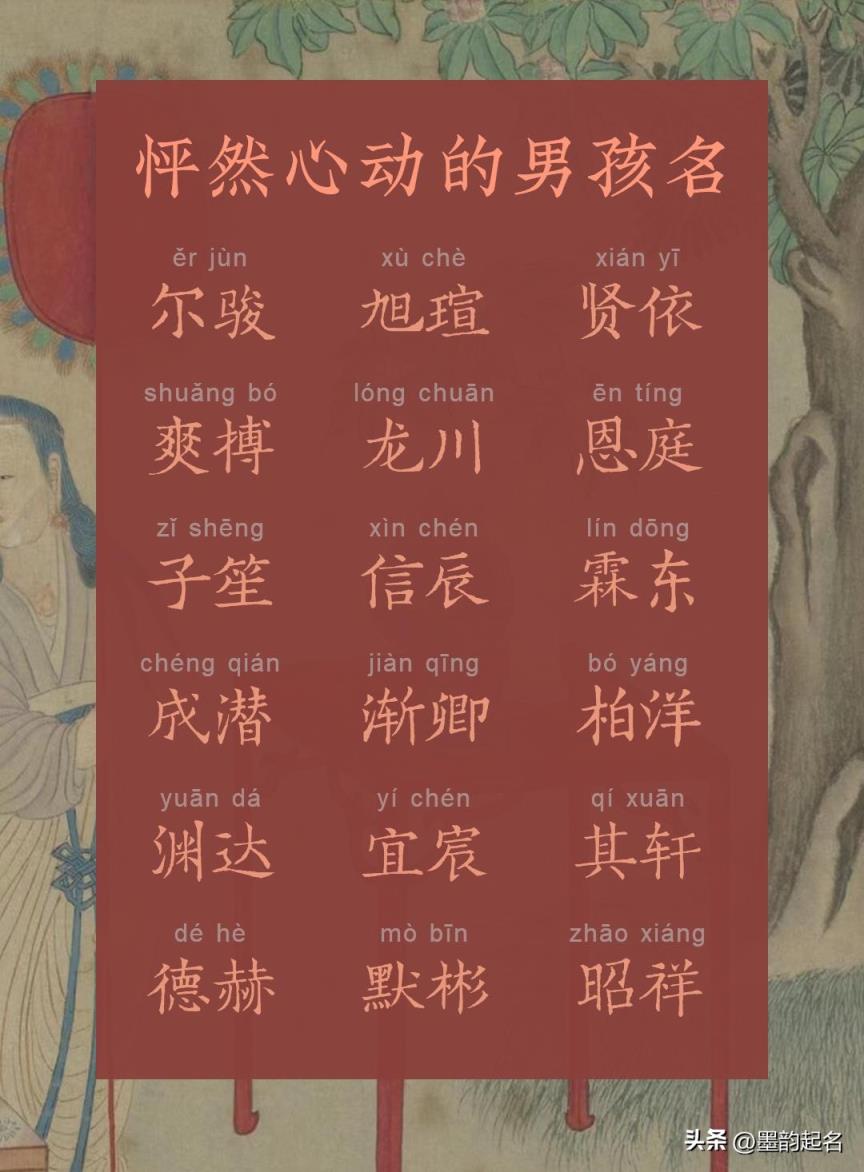 怦然心动的男孩名
ěr jùn xù chè xián yī
尔骏 旭瑄 贤依
shuǎng bó lóng chuān ēn tíng
爽搏 龙川 恩庭
zǐ shēng xìn chén lín dōng
子笙 信辰 霖东
chéng qián jiàn qīng bó yáng
成潜 渐卿 柏洋
yuān dá yí chén qí xuān
渊达 宜宸 其轩
dé hè mò bīn zhāo xiáng
德赫 默彬 昭祥
头条 @墨韵起名